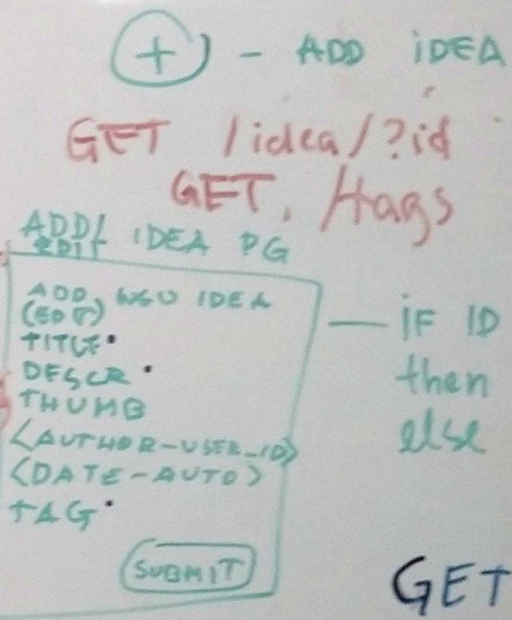 + - ADD IDEA
GET /idea/?id
GET, /tags
ADD/ EDIT IDEA PG
ADD IDEA
(EDT)
TITLE•
DESCR•
THUMB
<AUTHOR-USER_ID>
<DATE-AUTO>
TAG•
SUBMIT
— IF ID
then
else
GET